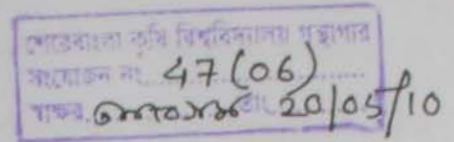 শেরেবাংলা কৃষি বিশ্ববিদ্যালয় গ্রন্থাগার
সংযোজন নং 47(06)
স্বাক্ষর তাং 20/05/10